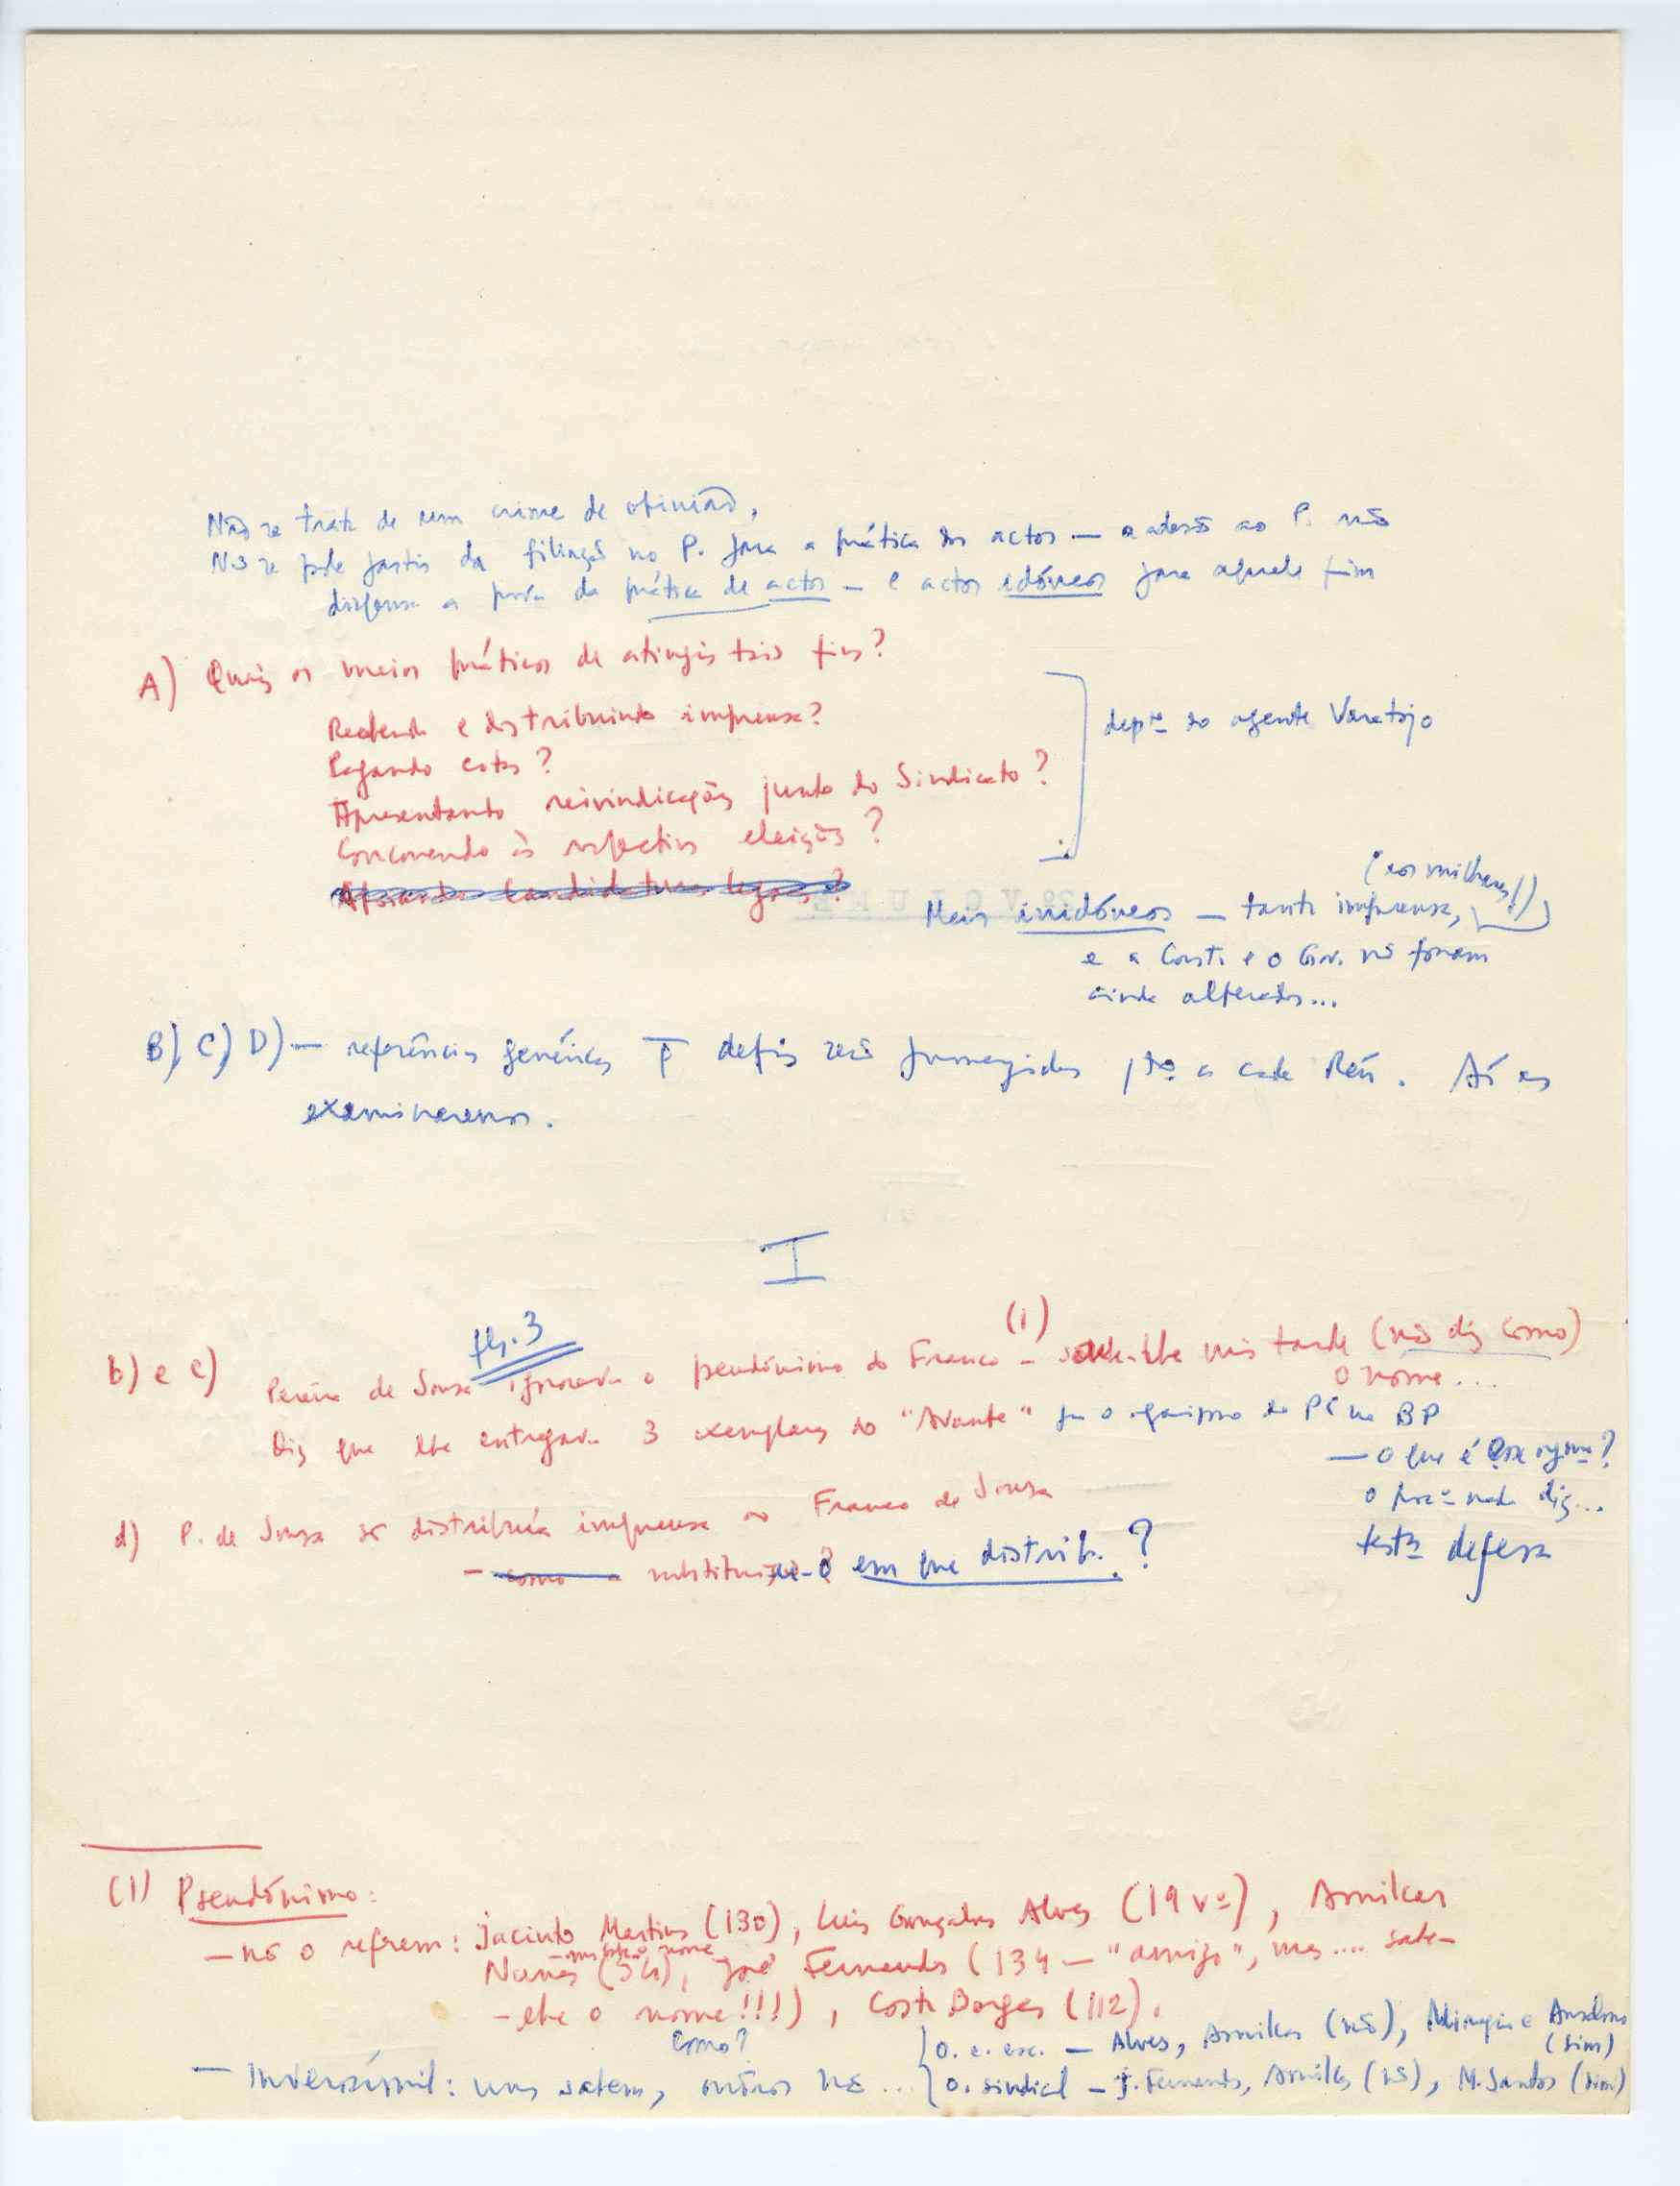 Não se trata de um crime de opinião,
Não se pode partir da filiação no P. para a prática dos actos — a adesão ao P. não
dispensa a prova da prática de actos — e actos idóneos para aquele fim
A) Quais os meios práticos de atingir tais fins?
Recebendo e distribuindo imprensa?
Pagando cotas?
Apresentando reivindicações junto do Sindicato?
Concorrendo às respectivas eleições?
Apoiando candidaturas legais?
depto do agente Varatojo
Meios inidóneos — tanta imprensa, (aos milhares!)
e a Const. e o Gov. não foram
ainda alterados...
B), C), D) — referências genéricas q̄ depois serão pormenorizadas qto a cada Réu. Aí as
examinaremos.
I
fls. 3
b) e c) Pereira de Sousa ignorava o pseudónimo do Franco (1) — soube-lhe mais tarde (não diz como)
o nome...
Diz que lhe entregava 3 exemplares do "Avante" p.a o organismo do PC no BP
— O que é esse orgmo?
o proco nada diz...
testa defesa
d) P. de Sousa só distribuía imprensa ao Franco de Sousa
— como a substituiu-o em que distrib.?
(1) Pseudónimo:
— não o referem: Jacinto Martins (130), Luís Gonçalves Alves (19 vº), Amilcar
Nunes (54), José Fernandes (134 — "amigo", mas.... sabe-
-lhe o nome!!!), Costa Borges (112).
Como?
— Inverosímil: uns sabem, outros não ...
o. e. esc. — Alves, Amilcar (não), Miragaia e Anselmo (sim)
o. sindical — J. Fernandes, Amilcar (não), M. Santos (sim)